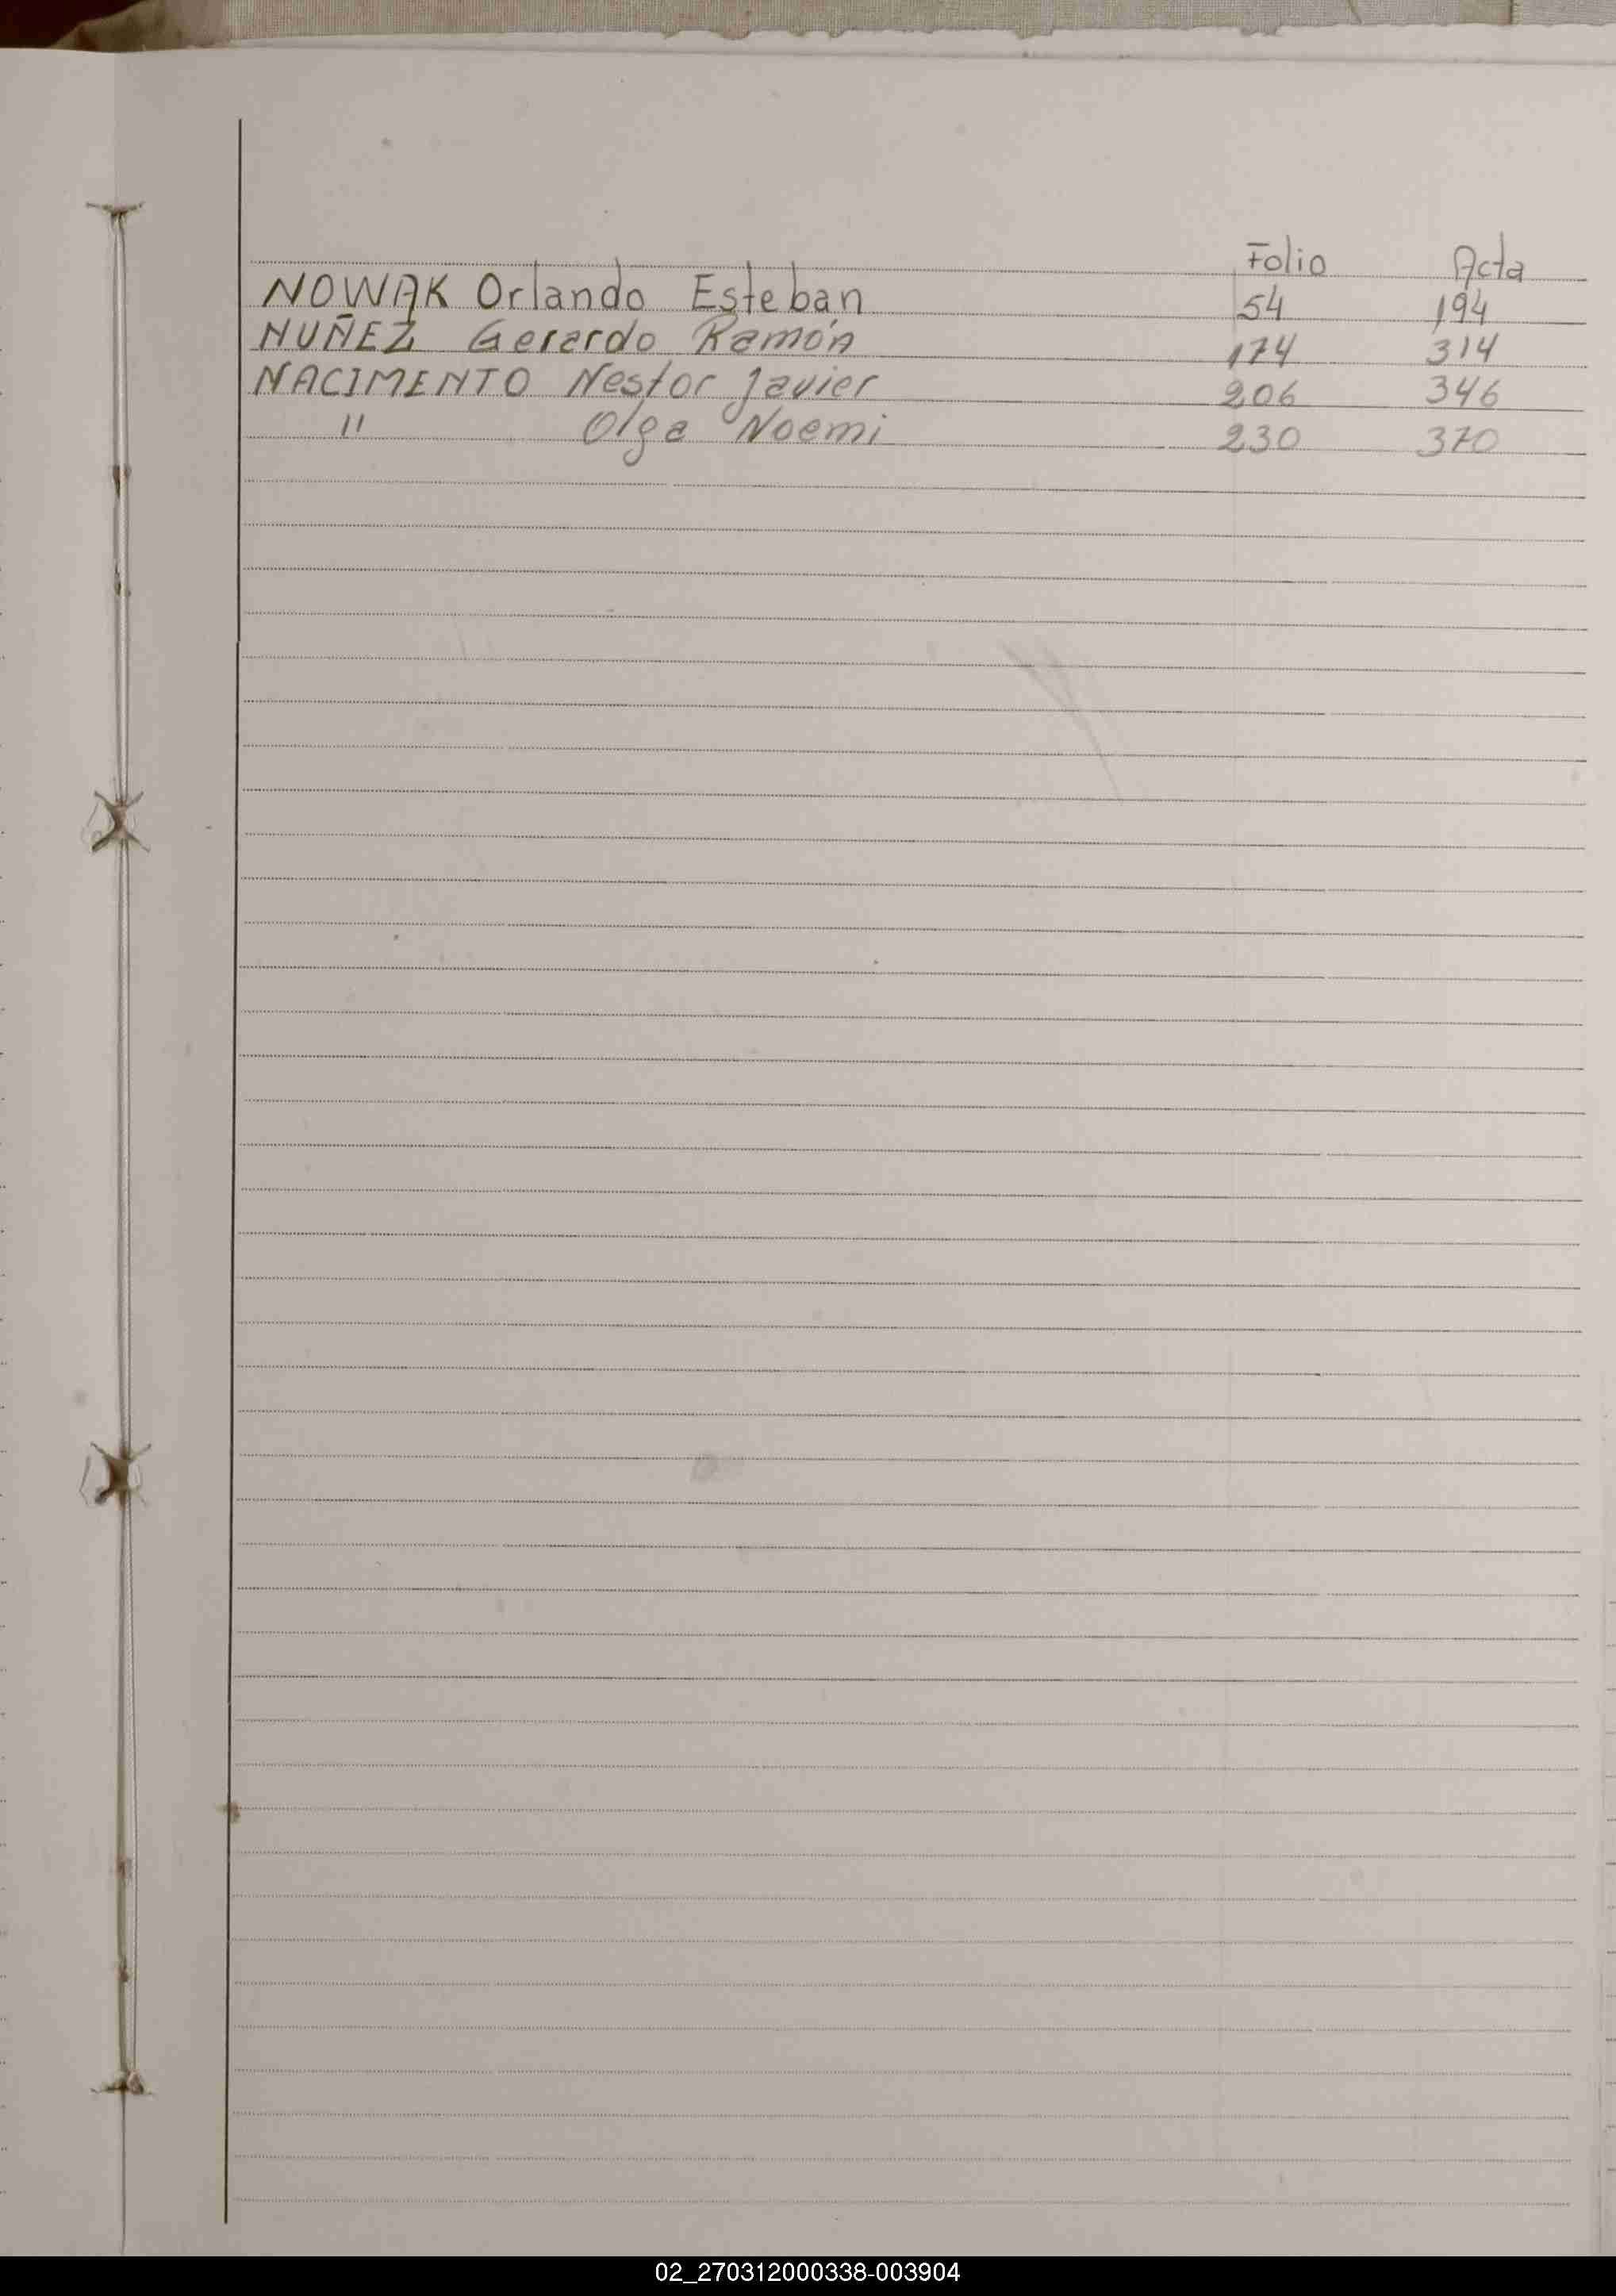 Folio Acta
NOWAK Orlando Esteban 54 194
NUÑEZ Gerardo Ramón 174 314
NACIMENTO Nestor Javier 206 346
" Olga Noemi 230 370
02_270312000338-003904